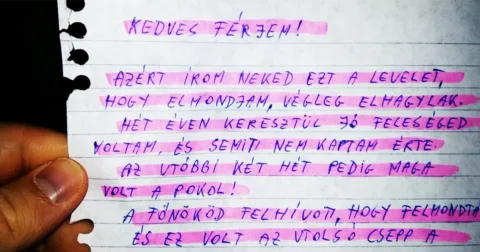 KEDVES FÉRJEM!
AZÉRT ÍROM NEKED EZT A LEVELET,
HOGY ELMONDJAM, VÉGLEG ELHAGYLAK.
HÉT ÉVEN KERESZTÜL JÓ FELESÉGED
VOLTAM, ÉS SEMITI NEM KAPTAM ÉRTE.
AZ UTÓBBI KÉT HÉT PEDIG MAGA
VOLT A POKOL!
A FŐNÖKÖD FELHÍVOTT, HOGY FELMONDTÁ
ÉS EZ VOLT AZ UTOLSÓ CSEPP A